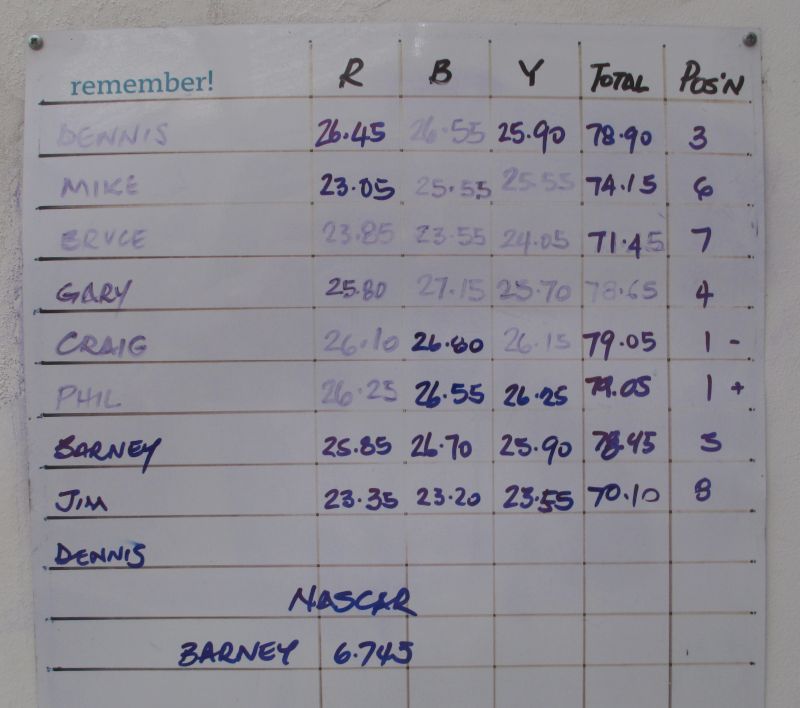 remember! R B Y TOTAL POS'N
DENNIS 26.45 26.55 25.90 78.90 3
MIKE 23.05 25.55 25.55 74.15 6
BRUCE 23.85 23.55 24.05 71.45 7
GARY 25.80 27.15 25.70 78.65 4
CRAIG 26.10 26.80 26.15 79.05 1 -
PHIL 26.25 26.55 26.25 79.05 1 +
BARNEY 25.85 26.70 25.90 78.45 5
JIM 23.35 23.20 23.55 70.10 8
DENNIS
NASCAR
BARNEY 6.745